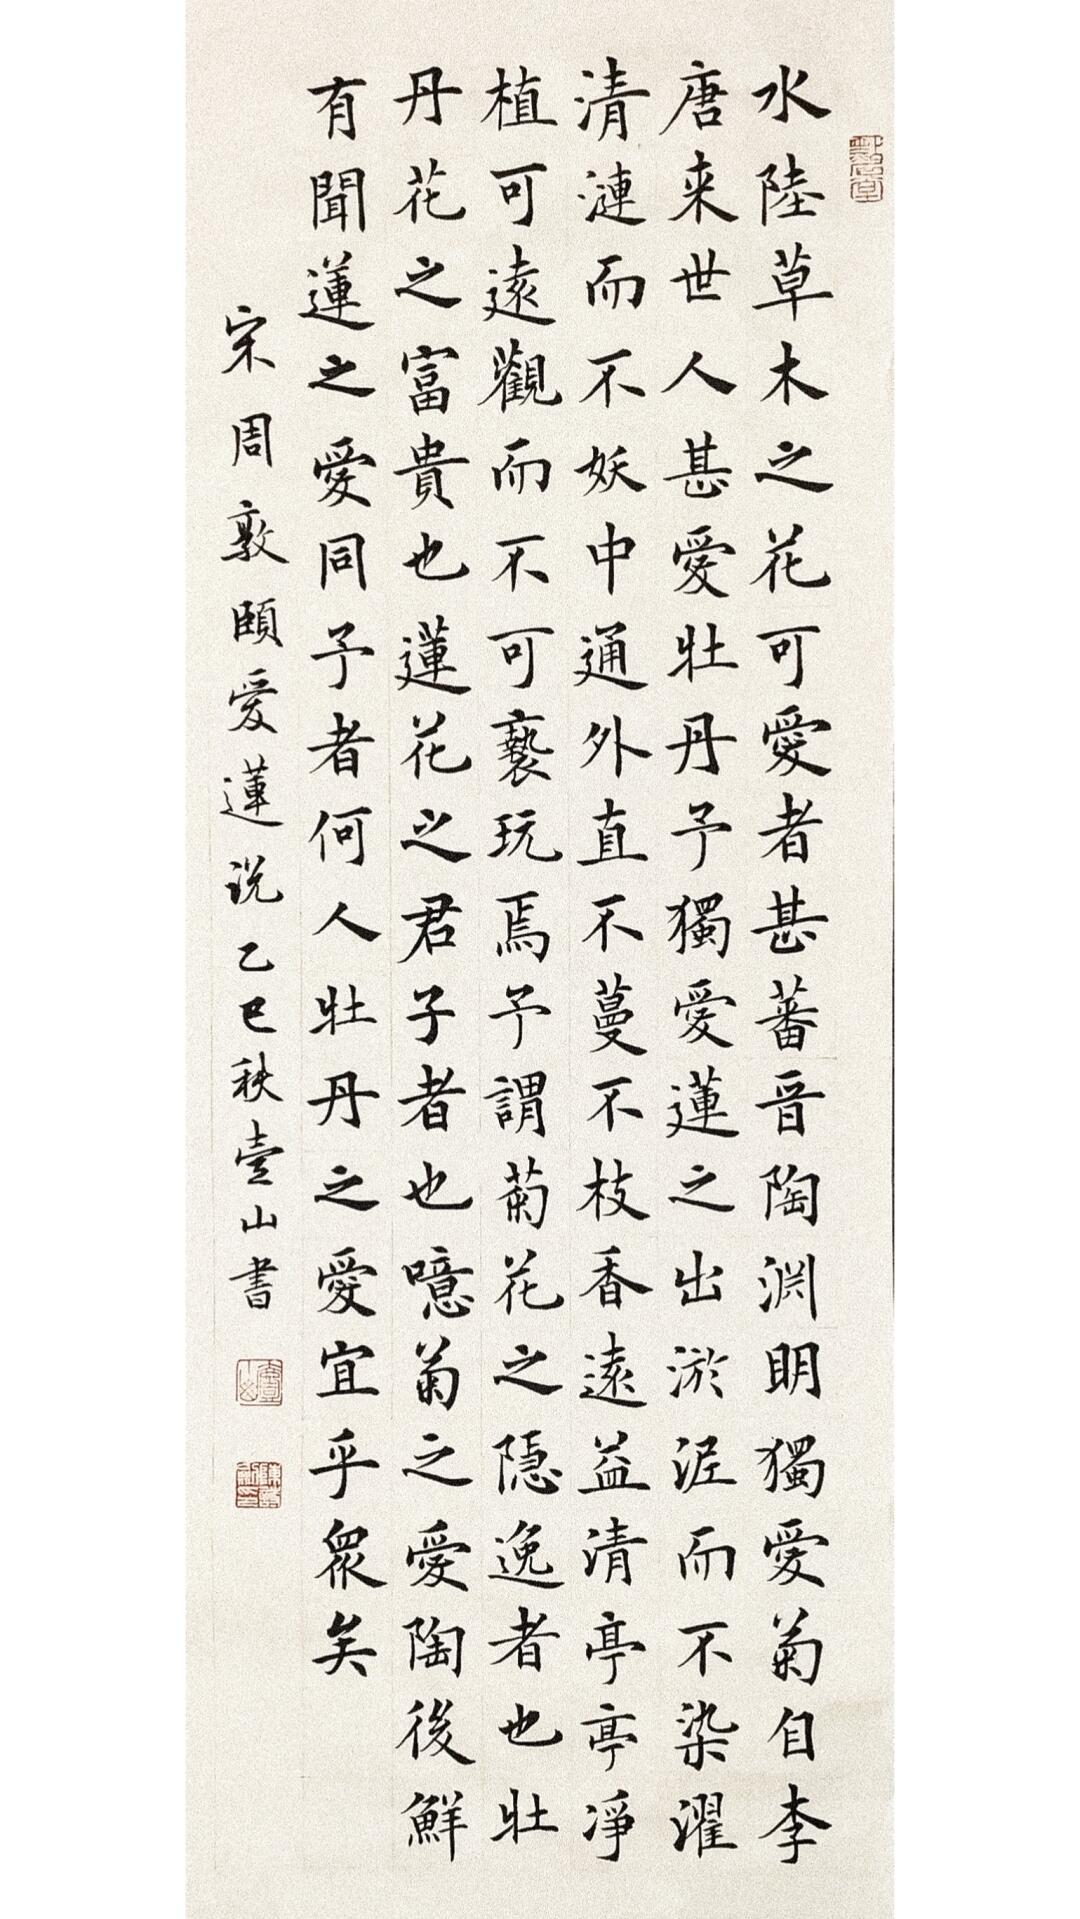 水陸草木之花可愛者甚蕃晉陶淵明獨愛菊自李
唐来世人甚愛牡丹予獨愛蓮之出淤泥而不染濯
清漣而不妖中通外直不蔓不枝香遠益清亭亭淨
植可遠觀而不可褻玩焉予謂菊花之隱逸者也牡
丹花之富貴也蓮花之君子者也噫菊之愛陶後鮮
有聞蓮之愛同予者何人牡丹之愛宜乎眾矣
宋周敦頤愛蓮说乙巳秋壹山書